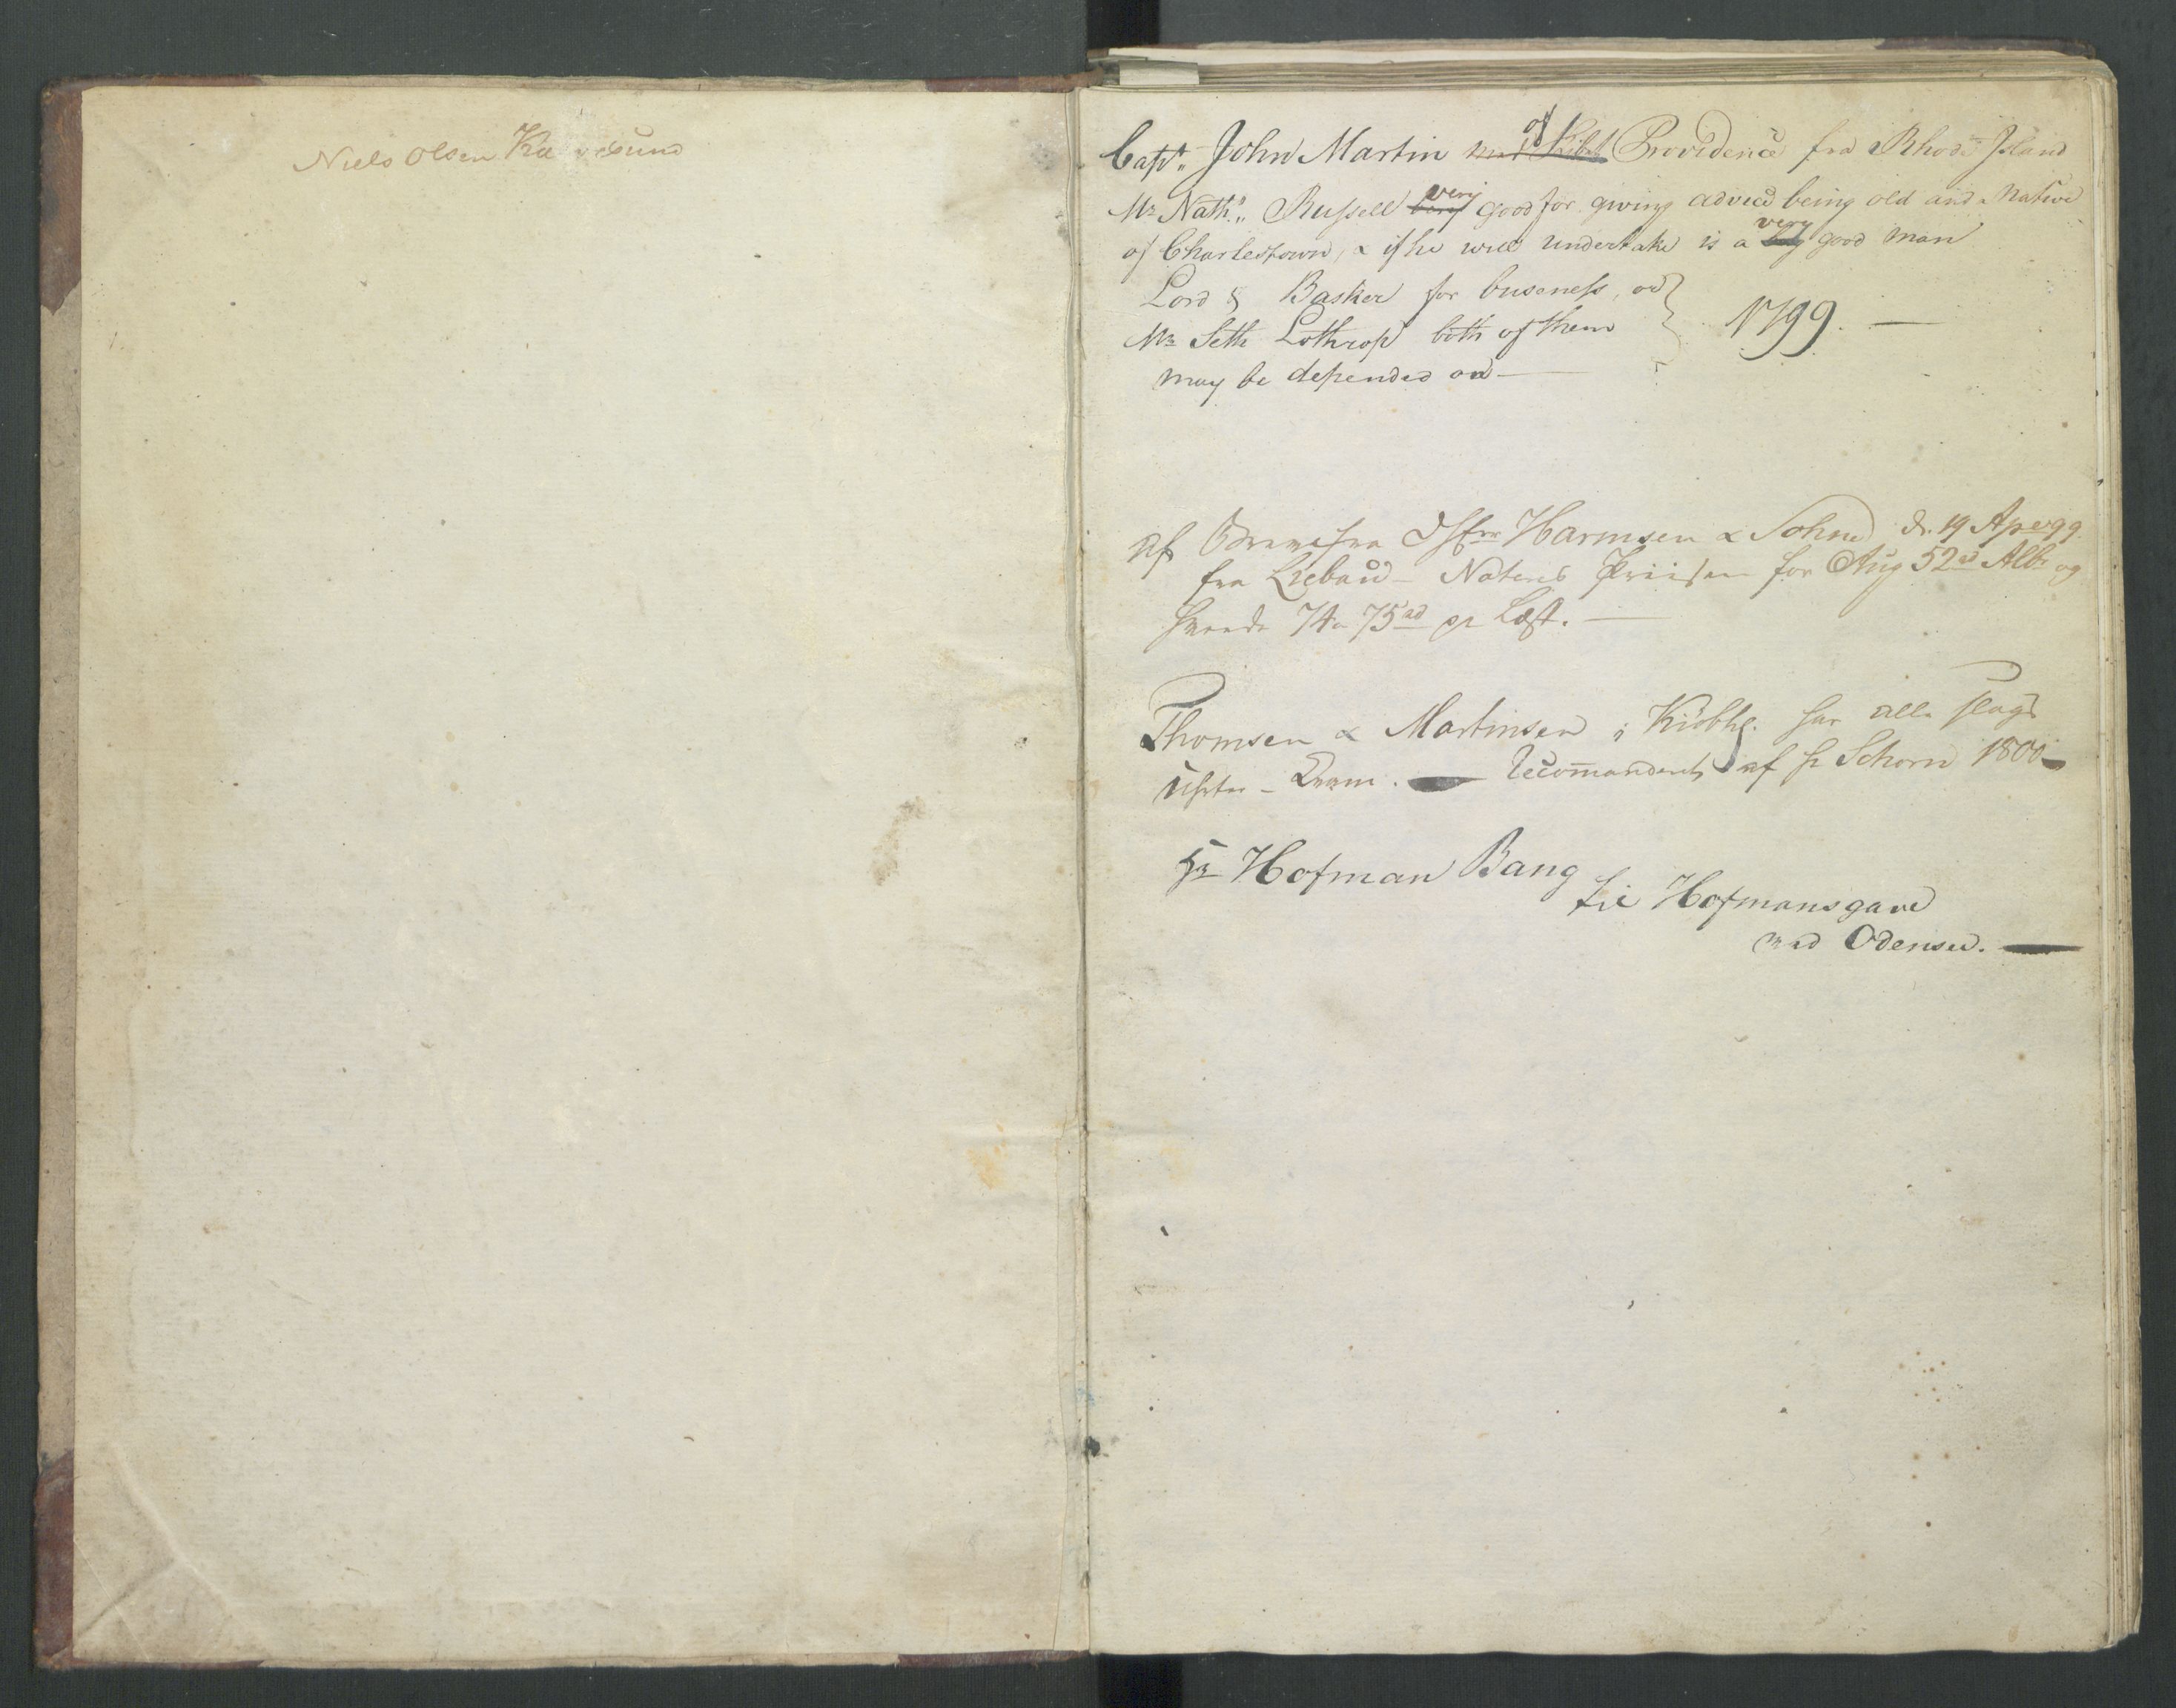 Niels Olsen
Capt„ John Martin of Providence fra Rhode Island
Mr Nathl„ Russell very good for giving advice being old and a native
of Charlestown, & if he will undertake is a very good man
Lord & Basker for buseness, or
Mr Seth Lothrop both of them
may be depended on —
1799. —
af Hrr Harmsen & Sohne d. 19 Ap 99
fra Liebau - Noteres Priisen for Rug 52 rd Alb. og
74 a 75 rd pr Læst. —
Thomsen & Martinsen i Kiöbhf. har alle slags
Recommanderet af hr Schorn 1800 —
Hr Hofman Bang
til Hofmansgave
ved Odense. —